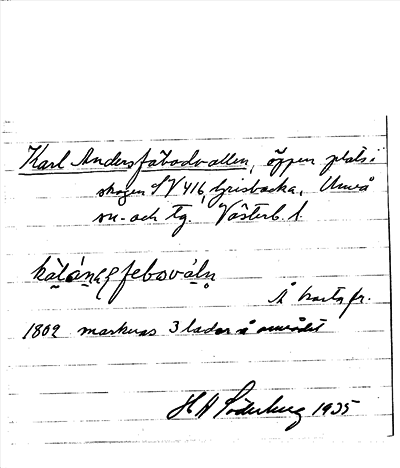 Karl Andersfäbodvallen, öppen plats i
skogen SV 416, Grisbacka, Umeå
sn- och tg Västerb. l.
Å karta fr.
1809 markeras 3 lador å området
H H Söderberg 1935